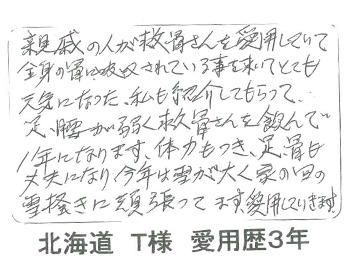 親戚の人が救骨さんを愛用していて
全身の骨に吸収されている事を来いてとても
元気になった、私も紹介してもらって、
足、腰が弱く救骨さんを飲んで
1年になります、体力もつき、足、骨も
丈夫になり今年は雪が大く家の回の
雪掻きに頑張ってます、愛用していきます。
北海道 T様 愛用歴3年